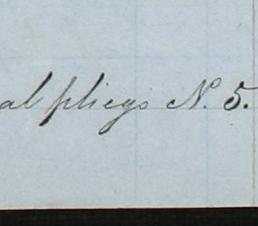 al pliego N. 5.